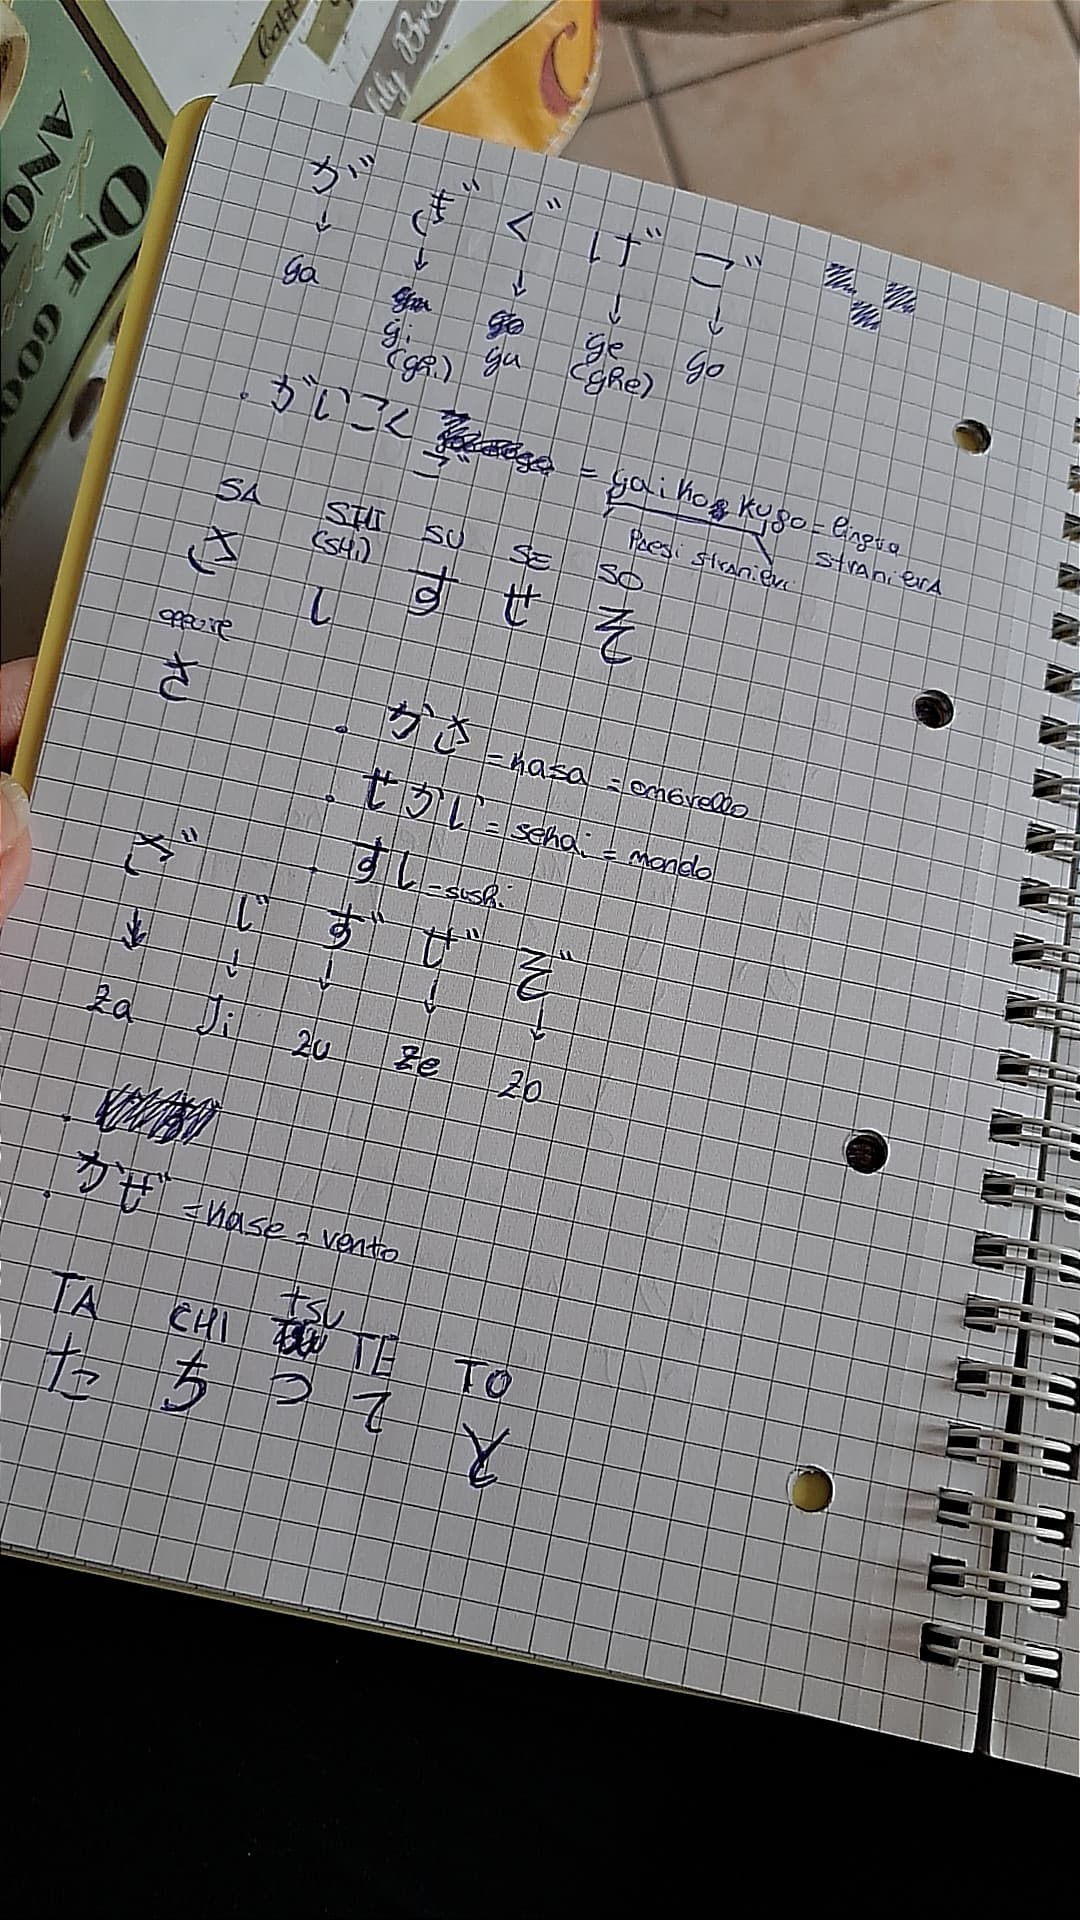 ONE
GOO
が ぎ ぐ げ ご
↓ ↓ ↓ ↓ ↓
ga gi gu ge go
(ghi) (ghe)
. がいこく ご = gaikokugo = lingua straniera
Paesi stranieri
SA SHI SU SE SO
(SHi)
さ し す せ そ
oppure
さ
. かさ = kasa = ombrello
. せかい = sekai = mondo
. すし = sushi
ざ じ ず ぜ ぞ
↓ ↓ ↓ ↓ ↓
za Ji zu ze zo
. かぜ = kase = vento
TA CHI tsu TE TO
た ち つ て と